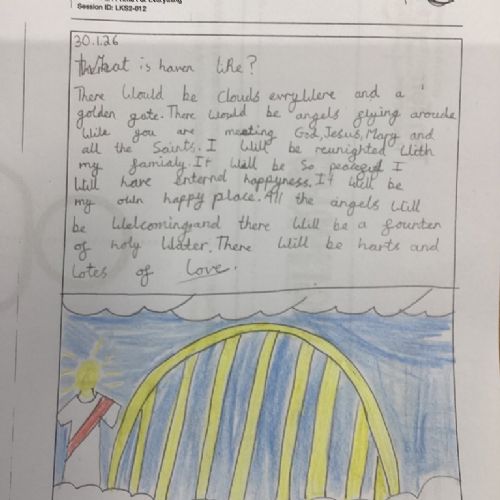 Session ID: LKS2-012
30.1.26
What is haven like?
There Would be Clouds evryWere and a
golden gate. There Would be angels flying aroude
Wile you are meeting God, Jesus, Mary and
all the Saints. I Will be reunighted With
my famialy. It Will be So peacgful I
Will have enternel happyness. It Will be
my own happy place. All the angels Will
be Welcoming and there Will be a founter
of holy Water. There Will be harts and
Lotes of Love.